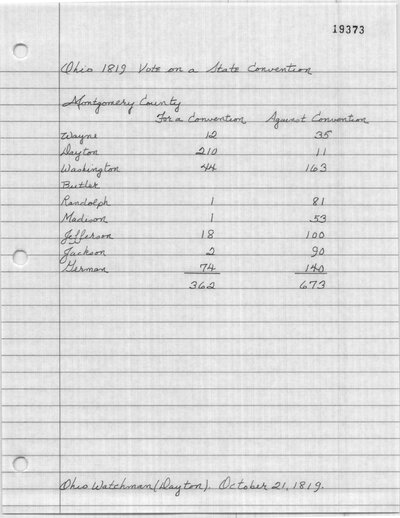 19373
Ohio 1819 Vote on a State Convention
Montgomery County
For a Convention Against Convention
Wayne 12 35
Dayton 210 11
Washington 44 163
Butler
Randolph 1 81
Madison 1 53
Jefferson 18 100
Jackson 2 90
German 74 140
362 673
Ohio Watchman (Dayton). October 21, 1819.